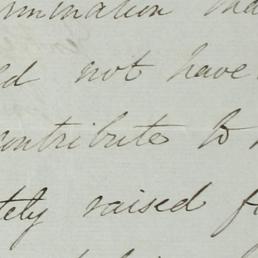 mination tha
ed not have
contribute to
tely raised f